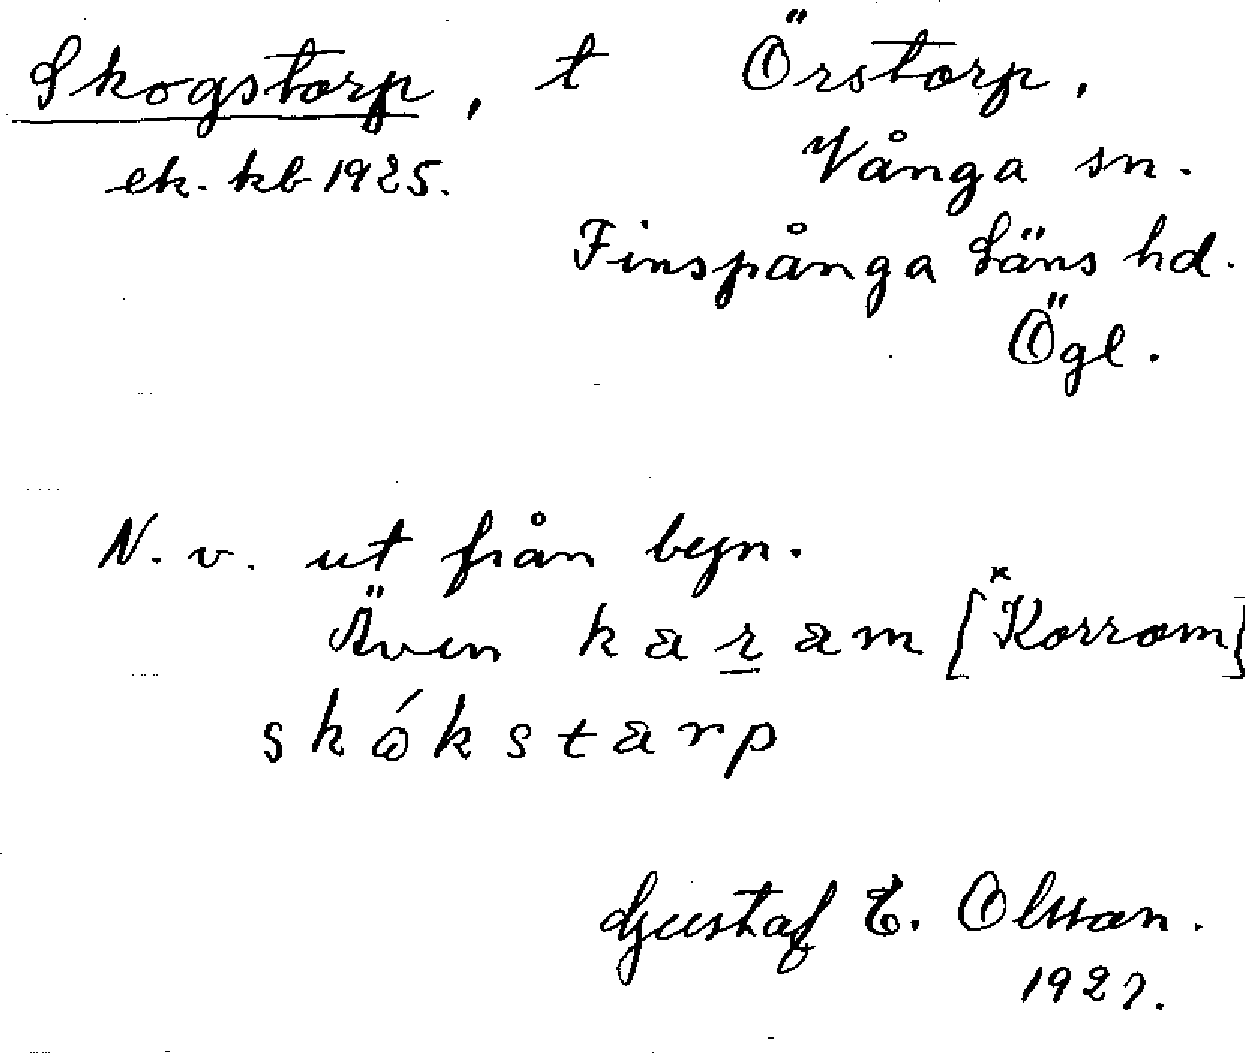 Skogstorp, t Örstorp,
ek. kb 1925. Vånga sn.
Finspånga Läns hd.
Ögl.
N. v. ut från byn.
Även karam [*Korrom]
skókstarp
Gustaf E. Olsson.
1927.